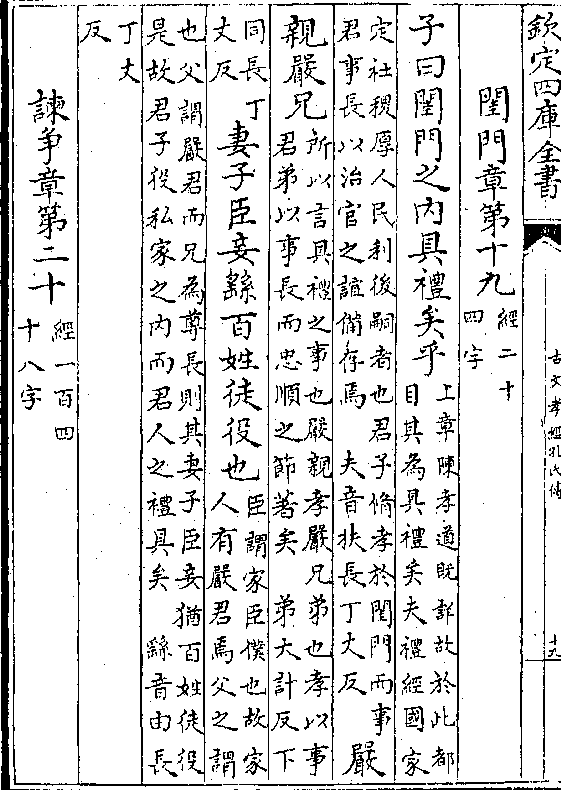 欽定四庫全書
古文孝經孔氏傳
十九
閨門章第十九 經二十
四字
子曰閨門之内具禮矣乎 上章陳孝道既詳故於此都
目其為具禮矣夫禮經國家
定社稷厚人民利後嗣者也君子脩孝於閨門而事
君事長以治官之誼備存焉 夫音扶長丁丈反
嚴
親嚴兄 所以言具禮之事也嚴親孝嚴兄弟也孝以事
君弟以事長而忠順之節著矣 弟大計反下
同長丁
丈反
妻子臣妾繇百姓徒役也 臣謂家臣僕也故家
人有嚴君焉父之謂
也父謂嚴君而兄為尊長則其妻子臣妾猶百姓徒役
是故君子役私家之内而君人之禮具矣 繇音由長
丁丈
反
諫争章第二十 經一百四
十八字